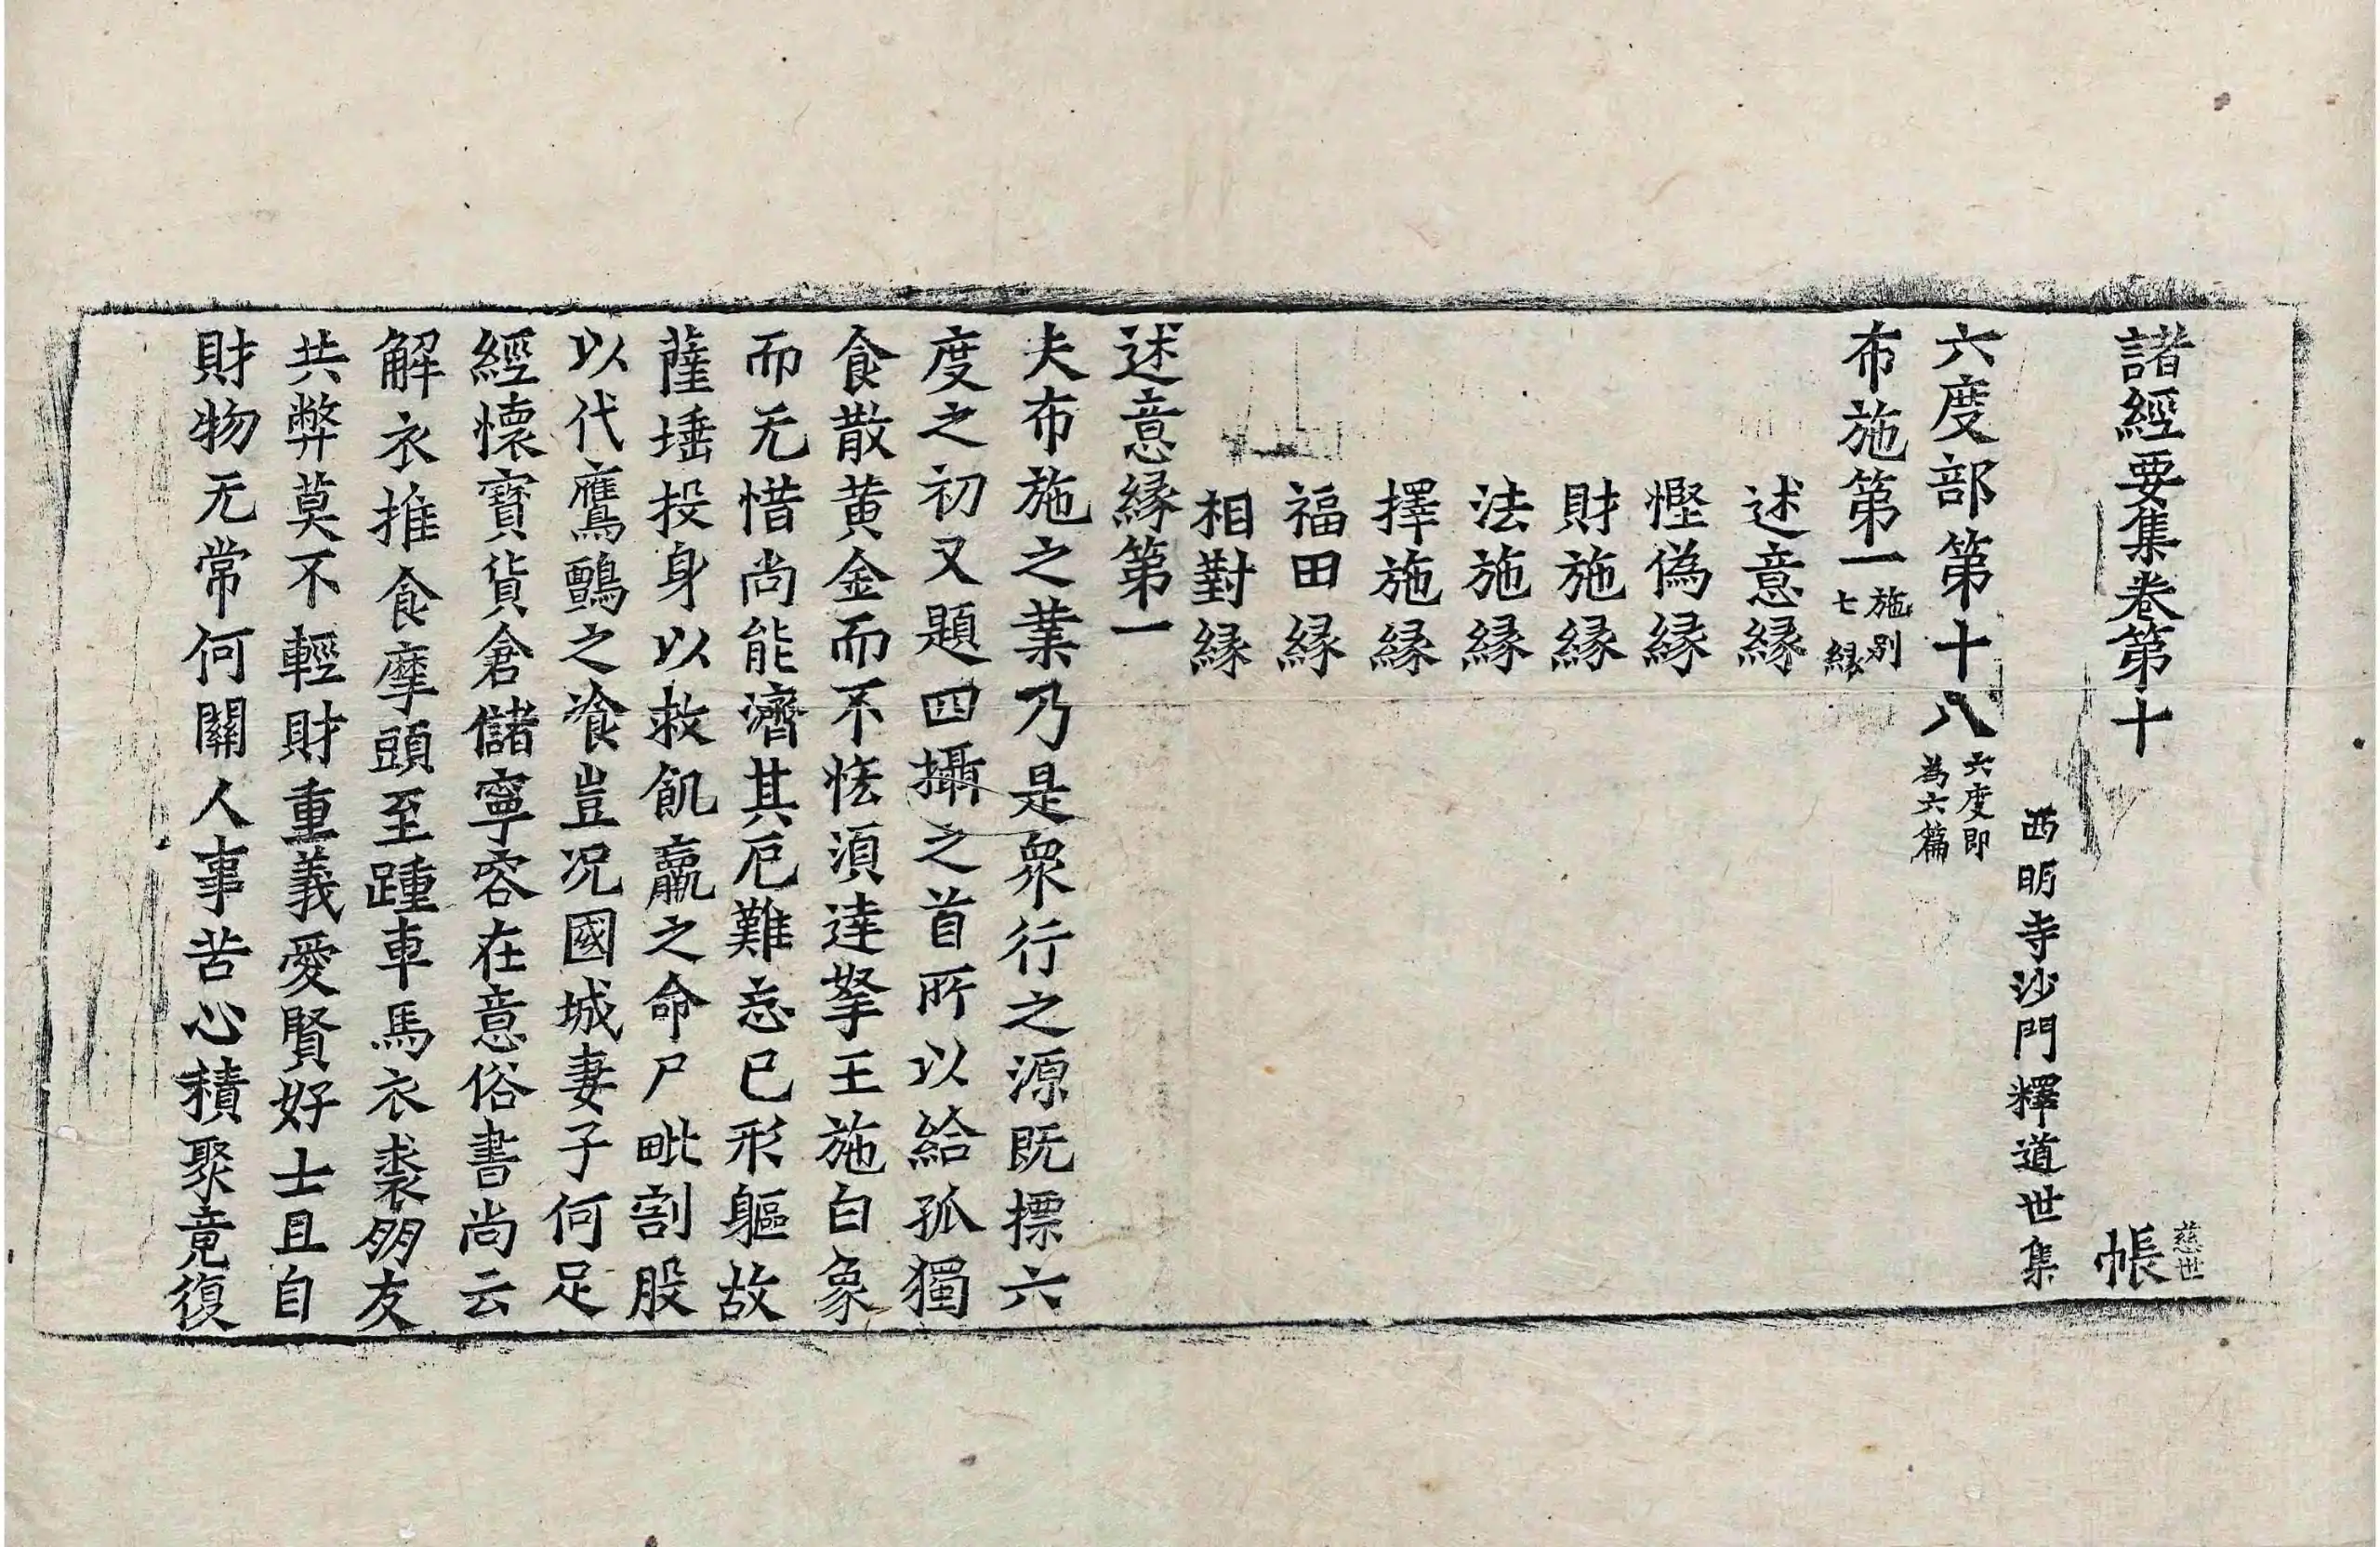 諸經要集卷第十 帳 慈世
西明寺沙門釋道世集
六度部第十八 六度即為六篇
布施第一 施別七縁
述意縁
慳偽縁
財施縁
法施縁
擇施縁
福田縁
相對縁
述意縁第一
夫布施之業乃是衆行之源既摽六
度之初又題四攝之首所以給孤獨
食散黄金而不恡湏達拏王施白象
而无惜尚能濟其厄難忘已形軀故
薩埵投身以救飢羸之命尸毗割股
以代鷹鸇之飡豈况國城妻子何足
經懷寳貨倉儲寧容在意俗書尚云
解衣推食摩頭至踵車馬衣裘朋友
共弊莫不輕財重義愛賢好士且自
財物无常何關人事苦心積聚竟復